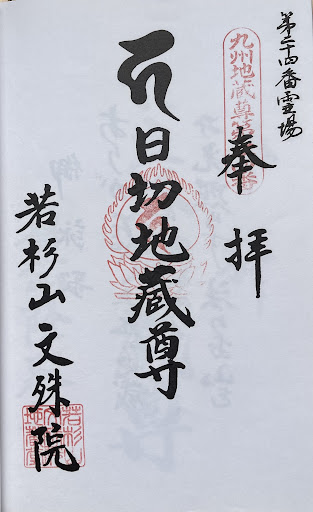 第二十四番霊場
九州地蔵尊
奉拝
日切地蔵尊
若杉山文殊院